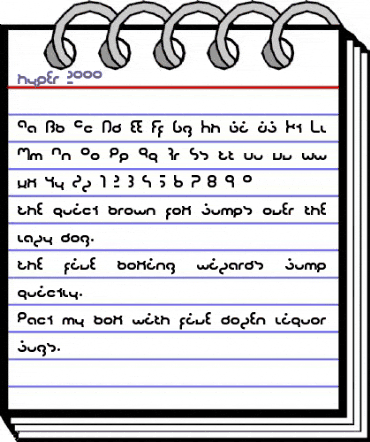 hyper 2000
Aa Bb Cc Dd EE Ff Gg Hh ii jj Kk LL
Mm Nn Oo Pp Qq Rr Ss tt uu vv ww
xx yy zz 1 2 3 4 5 6 7 8 9 0
thE quick brown fox jumps over thE
lazy dog.
thE fivE boxing wizards jump
quickly.
Pack my box with fivE dozEn liquor
jugs.